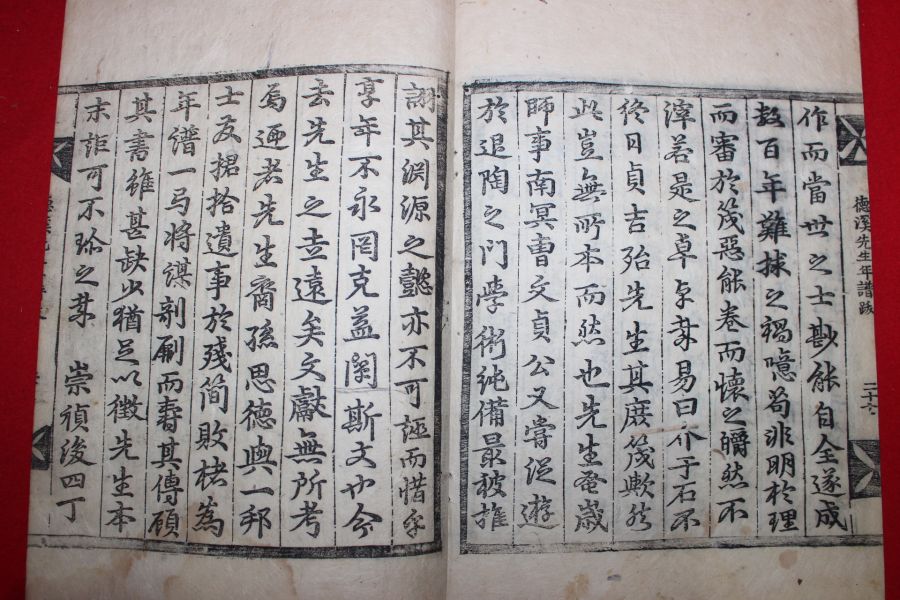 作而當世之士尠能自全遂成
數百年難捄之禍噫苟非明於理
而審於幾惡能卷而懷之皭然不
滓若是之卓卓哉易曰介于石不
終日貞吉殆先生其庶幾歟然
此豈無所本而然也先生蚤歲
師事南冥曺文貞公又嘗從遊
於退陶之門學術純備最被推
詡其淵源之懿亦不可誣而惜乎
享年不永罔克益闡斯文也今
去先生之世遠矣文獻無所考
焉迺者先生裔孫思德與一邦
士友捃拾遺事於殘簡敗楮爲
年譜一弓將謀剞劂而壽其傳顧
其書雖甚缺少猶足以徵先生本
末詎可不珍之哉 崇禎後四丁
德溪先生年譜跋
二十七